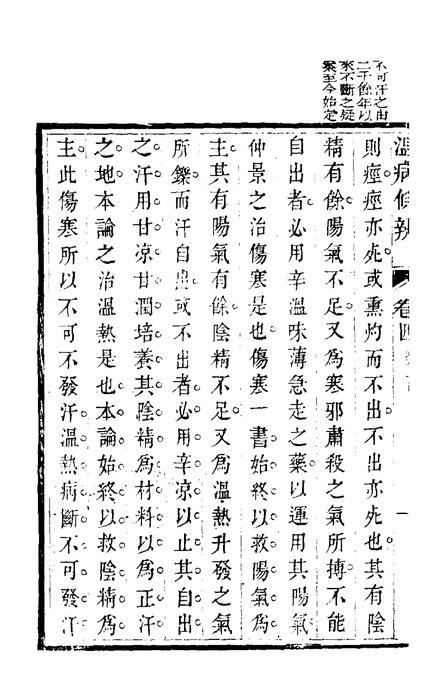 不可汗之由
二千餘年以
來不斷之疑
案至今始定
溫病條辨　卷四
則痙痙亦死或熏灼而不出不出亦死也其有陰
精有餘陽氣不足又爲寒邪肅殺之氣所搏不能
自出者必用辛溫味薄急走之藥以運用其陽氣
仲景之治傷寒是也傷寒一書始終以救陽氣爲
主其有陽氣有餘陰精不足又爲溫熱升發之氣
所鑠而汗自出或不出者必用辛凉以止其自出
之汗用甘凉甘潤培養其陰精爲材料以爲正汗
之地本論之治溫熱是也本論始終以救陰精爲
主此傷寒所以不可不發汗溫熱病斷不可發汗